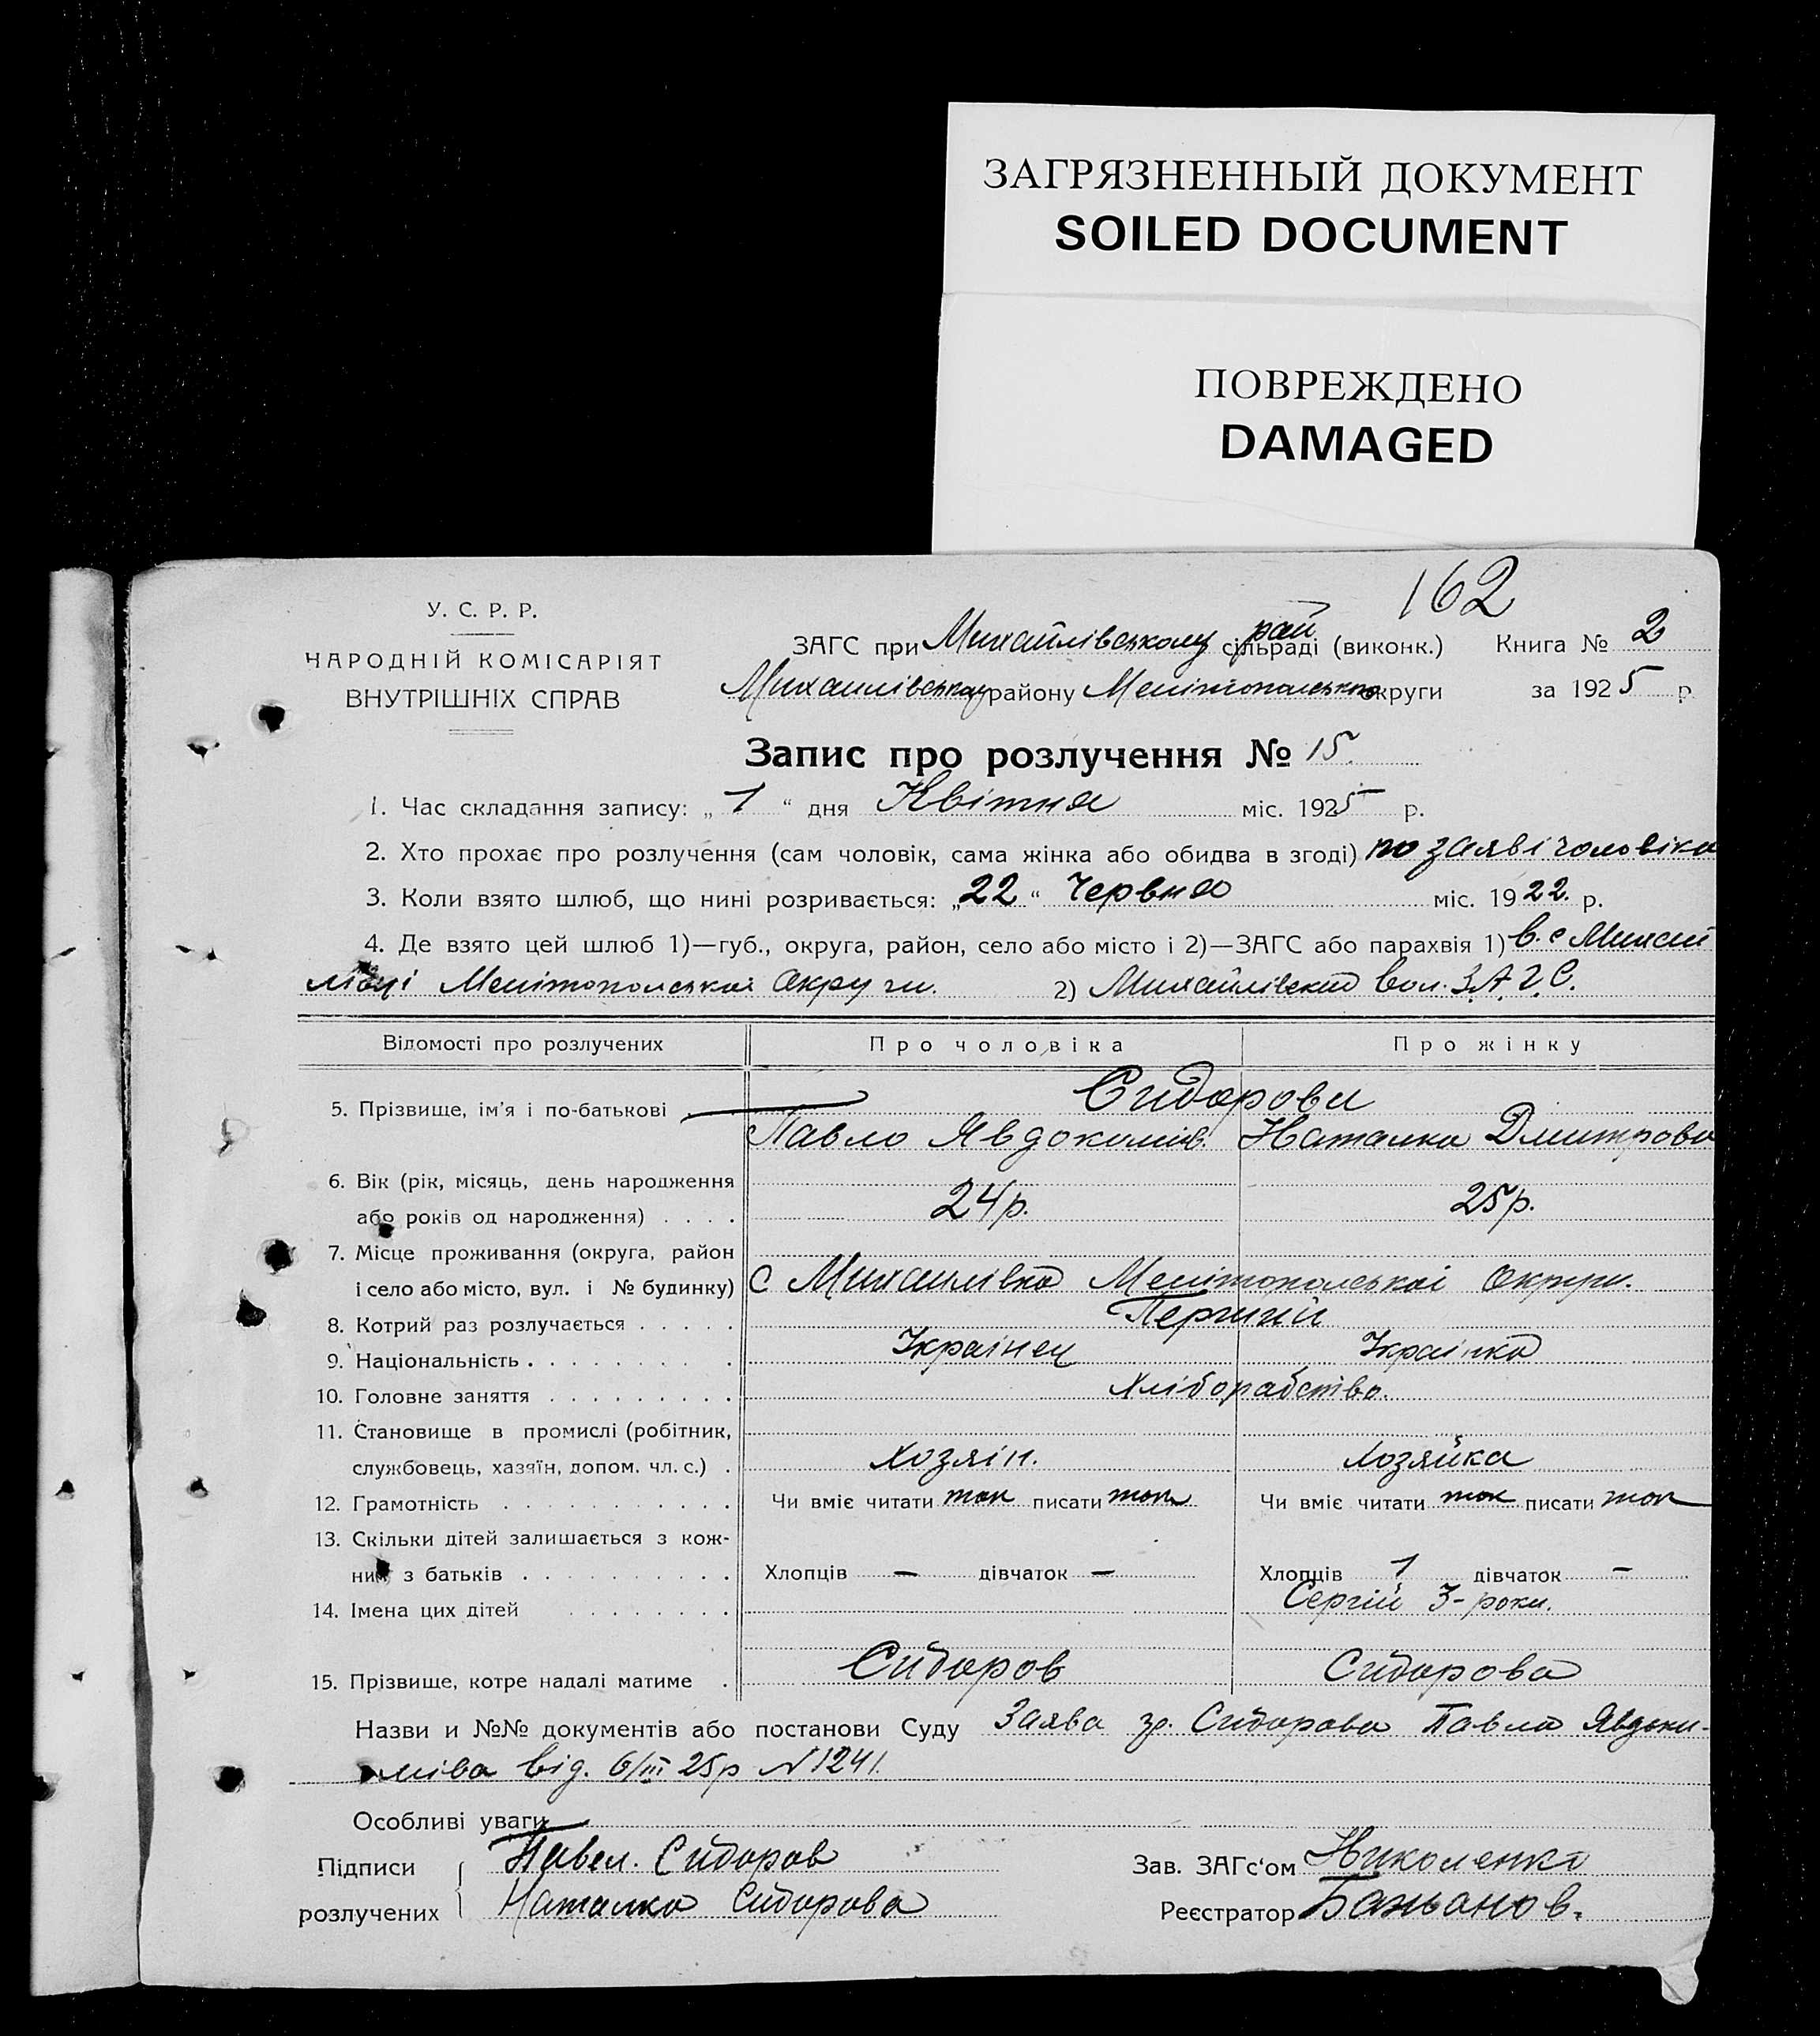 ЗАГРЯЗНЕННЫЙ ДОКУМЕНТ
SOILED DOCUMENT
ПОВРЕЖДЕНО
DAMAGED
162
У. С. Р. Р.
НАРОДНІЙ КОМІСАРІЯТ
ВНУТРІШНІХ СПРАВ
ЗАГС при Михайлівському рай сільраді (виконк.) Книга № 2
району Мелітопольсько округи за 1925 р
Запис про розлучення № 15.
1. Час складання запису: „ 1 “ дня Квітня міс. 1925 р.
2. Хто прохає про розлучення (сам чоловік, сама жінка або обидва в згоді) по заяві чоловіка
3. Коли взято шлюб, що нині розривається: „22“ Червня міс. 1922. р.
4. Де взято цей шлюб 1)—губ., округа, район, село або місто і 2)—ЗАГС або парахвія 1) в. с Михай
лівці Мелітопольскоі Округи. 2) Михайлівский Вол. З.А.Г.С.
Відомості про розлучених Про чоловіка Про жінку
5. Прізвище, ім'я і по-батькові Сидорови
Павло Явдокимів. Наталка Дмитрова
6. Вік (рік, місяць, день народження
або років од народження) . . . . 24р. 25р.
7. Місце проживання (округа, район
і село або місто, вул. і № будинку) с Михаилівка Мелітопольськоі Округи.
8. Котрий раз розлучається . . . . . Перший
9. Національність . . . . . . . . . Украінец Украінка
10. Головне заняття . . . . . . . . . Хліборабство.
11. Становище в промислі (робітник,
службовець, хазяїн, допом. чл. с.) . Хозяін. Хозяйка
12. Грамотність . . . . . . . . . . . Чи вміє читати так писати так Чи вміє читати так писати так
13. Скільки дітей залишається з кож-
ним з батьків . . . . . . . . . . Хлопців — дівчаток — Хлопців 1 дівчаток —
14. Імена цих дітей . . . . . . . . Сергій 3-роки.
15. Прізвище, котре надалі матиме . Сидоров Сидорова
Назви и №№ документів або постанови Суду Заява гр. Сидорова Павла Явдоки-
міва від. 6/III 25р N 1241.
Особливі уваги
Підписи Павел. Сидоров Зав. ЗАГс'ом Николенко
розлучених Наталка Сидорова Реєстратор